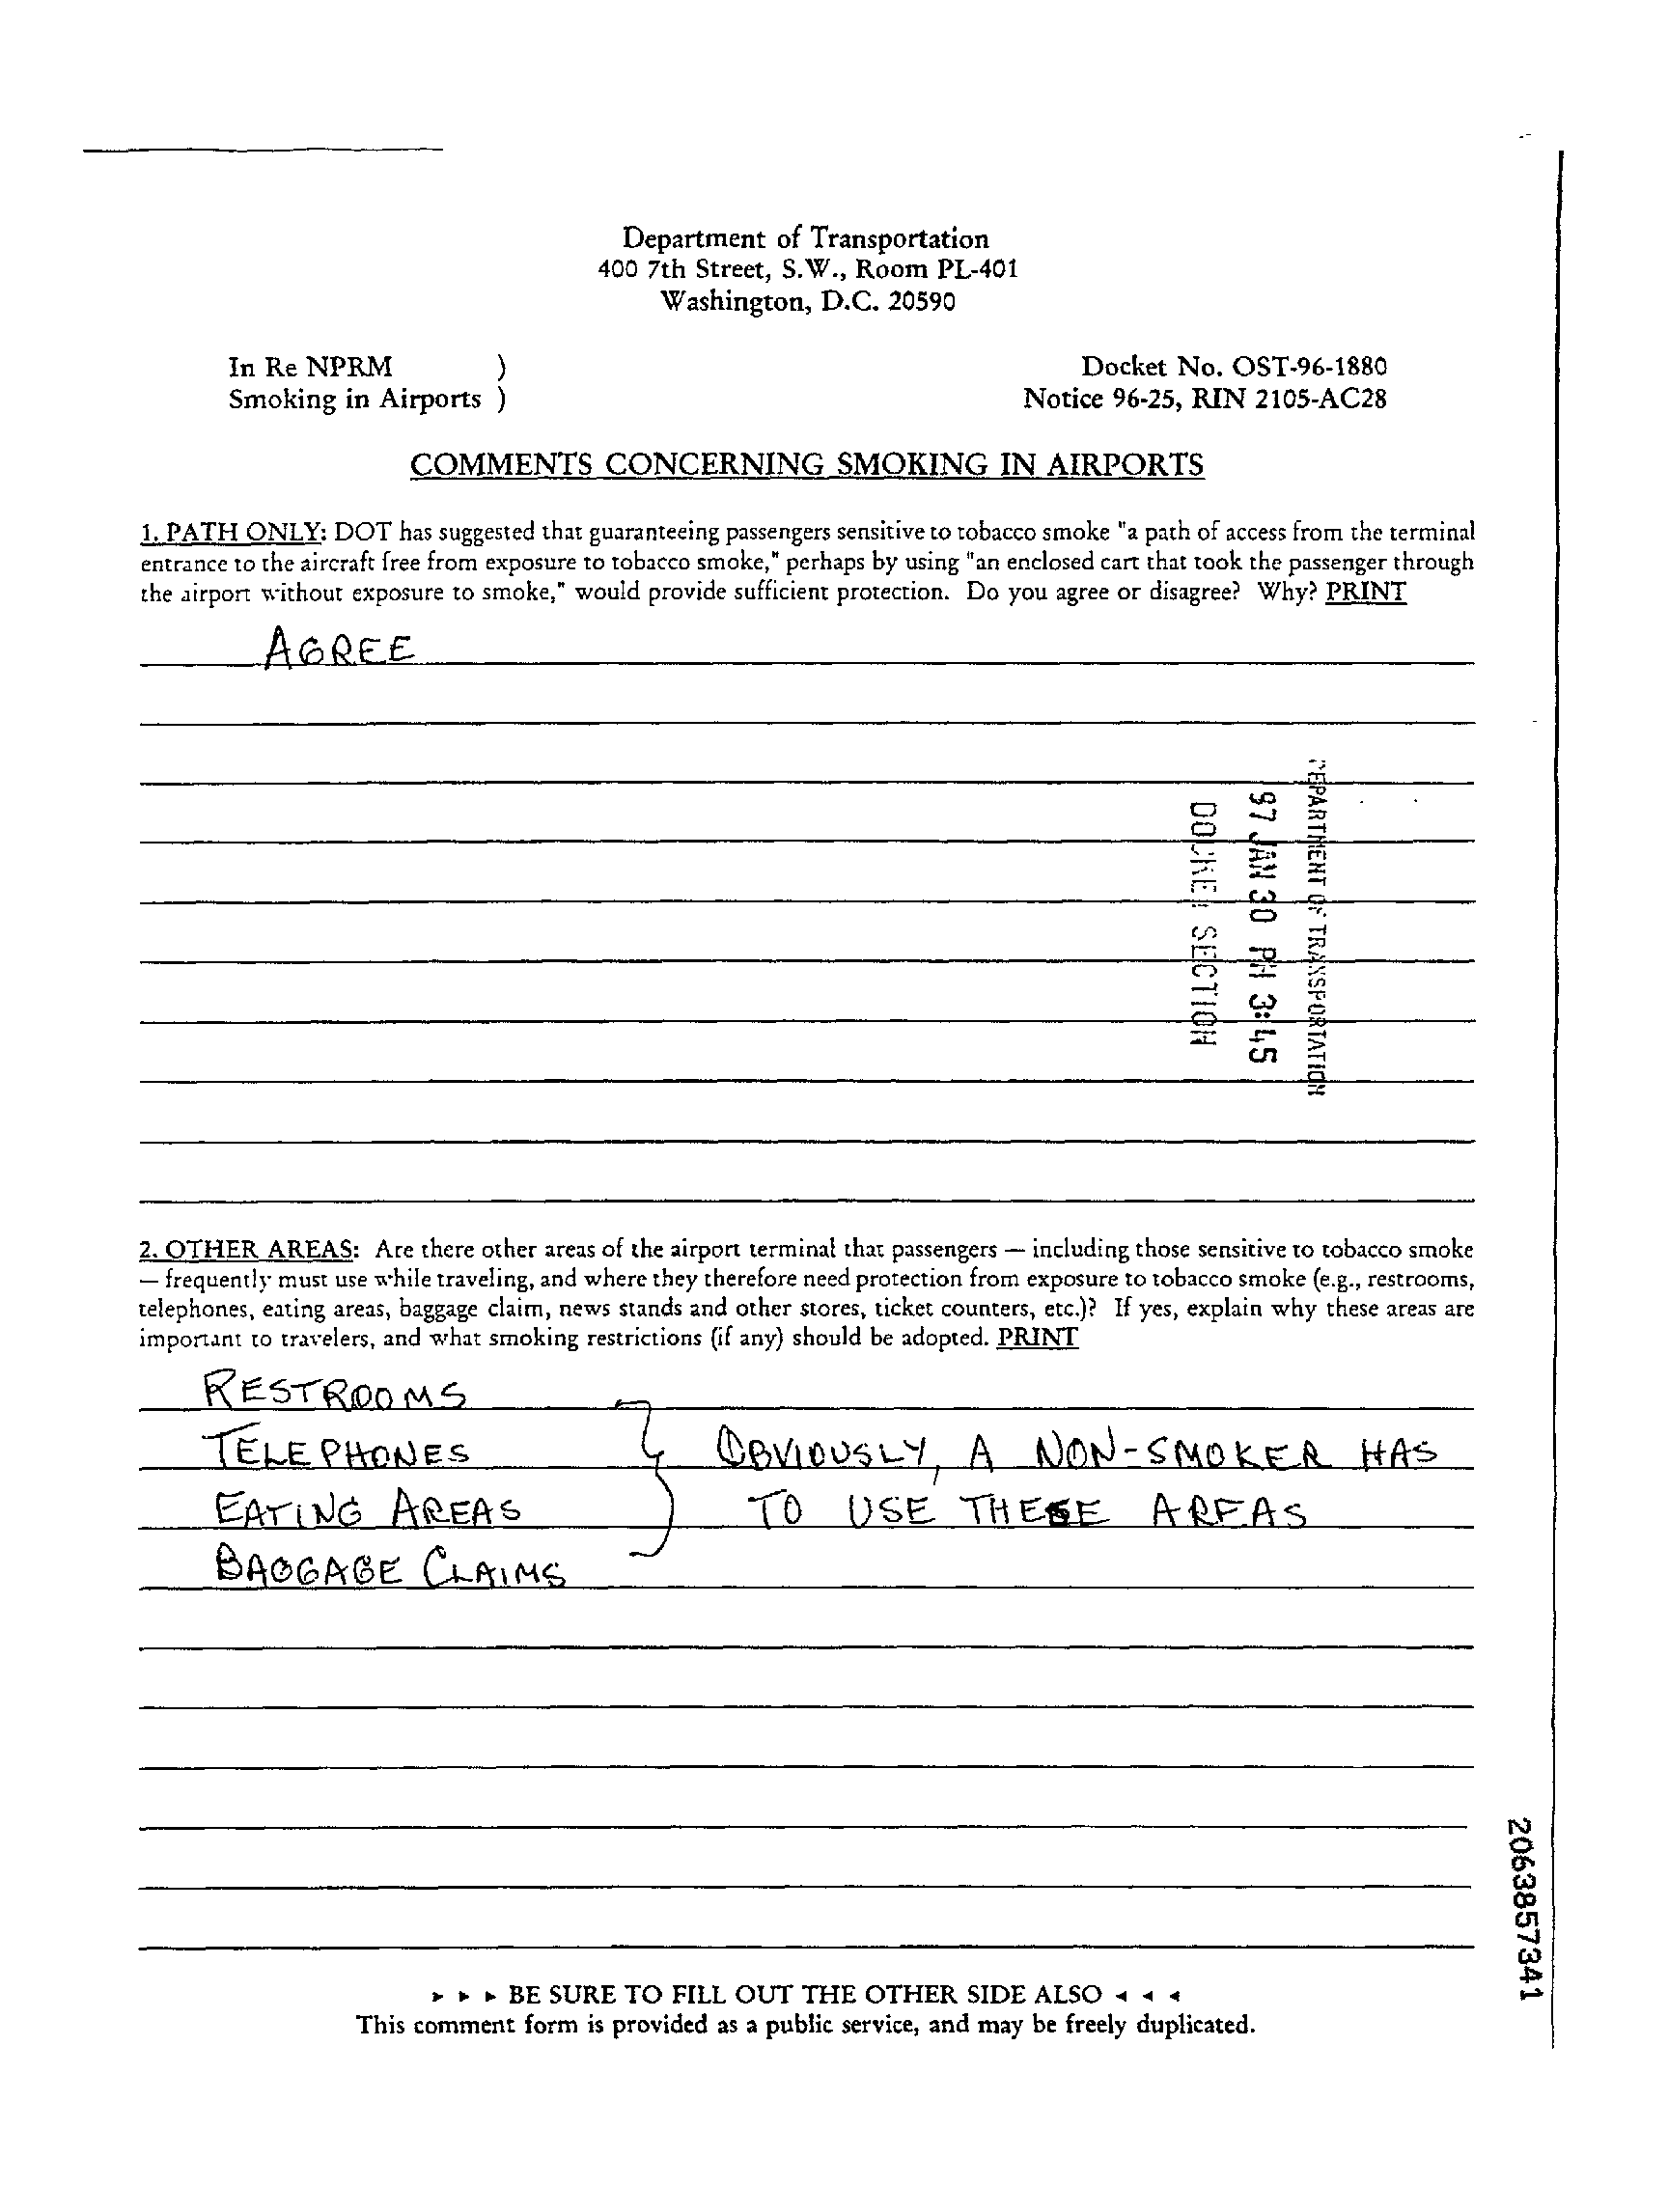 Department of Transportation
400 7th Street, S.W., Room PL-401
Washington, D.C. 20590
In Re NPRM )
Smoking in Airports )
Docket No. OST-96-1880
Notice 96-25, RIN 2105-AC28
COMMENTS CONCERNING SMOKING IN AIRPORTS
1. PATH ONLY: DOT has suggested that guaranteeing passengers sensitive to tobacco smoke "a path of access from the terminal
entrance to the aircraft free from exposure to tobacco smoke," perhaps by using "an enclosed cart that took the passenger through
the airport without exposure to smoke," would provide sufficient protection. Do you agree or disagree? Why? PRINT
AGREE
DEPARTMENT OF TRANSPORTATION
97 JAN 30 PM 3:45
DOCKET SECTION
2. OTHER AREAS: Are there other areas of the airport terminal that passengers — including those sensitive to tobacco smoke
— frequently must use while traveling, and where they therefore need protection from exposure to tobacco smoke (e.g., restrooms,
telephones, eating areas, baggage claim, news stands and other stores, ticket counters, etc.)? If yes, explain why these areas are
important to travelers, and what smoking restrictions (if any) should be adopted. PRINT
RESTROOMS
TELEPHONES OBVIOUSLY, A NON-SMOKER HAS
EATING AREAS TO USE THESE AREAS
BAGGAGE CLAIMS
▸ ▸ ▸ BE SURE TO FILL OUT THE OTHER SIDE ALSO ◂ ◂ ◂
This comment form is provided as a public service, and may be freely duplicated.
2063857341